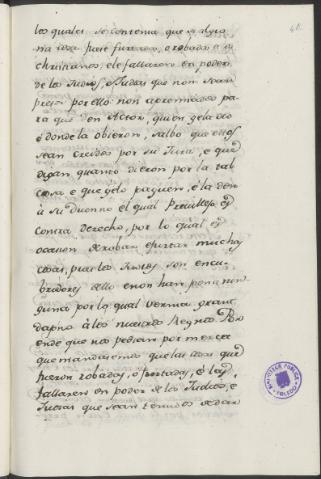 48.
los quales se contenia que si algu
na cosa fuere furtada, o robada a los
christianos, e le fallaren en poder
de los Judios, e Judias que non sean
presos por ello non apremiados pa
ra que den Actor, quien gela dio
e donde la obieron, salbo que ellos
sean creidos por su Jura, e que
digan quanto dieron por la tal
cosa e que gelo paguen, e la den
a su duenno el qual Previllejo es
contra derecho, por lo qual es
ocasion de robar e furtar muchas
cosas, pues los Judios son encu
bridores dello e non han pena nin
guna por lo qual vernia grant
dapno a los nuestros Reynos. Por
ende que nos pedian por merced
que mandasemos que las cosas que
fueron robadas, o furtadas, e les
fallaren en poder de los Judios, e
Judias que sean tenudos de dar
BIBLIOTECA PUBLICA
TOLEDO